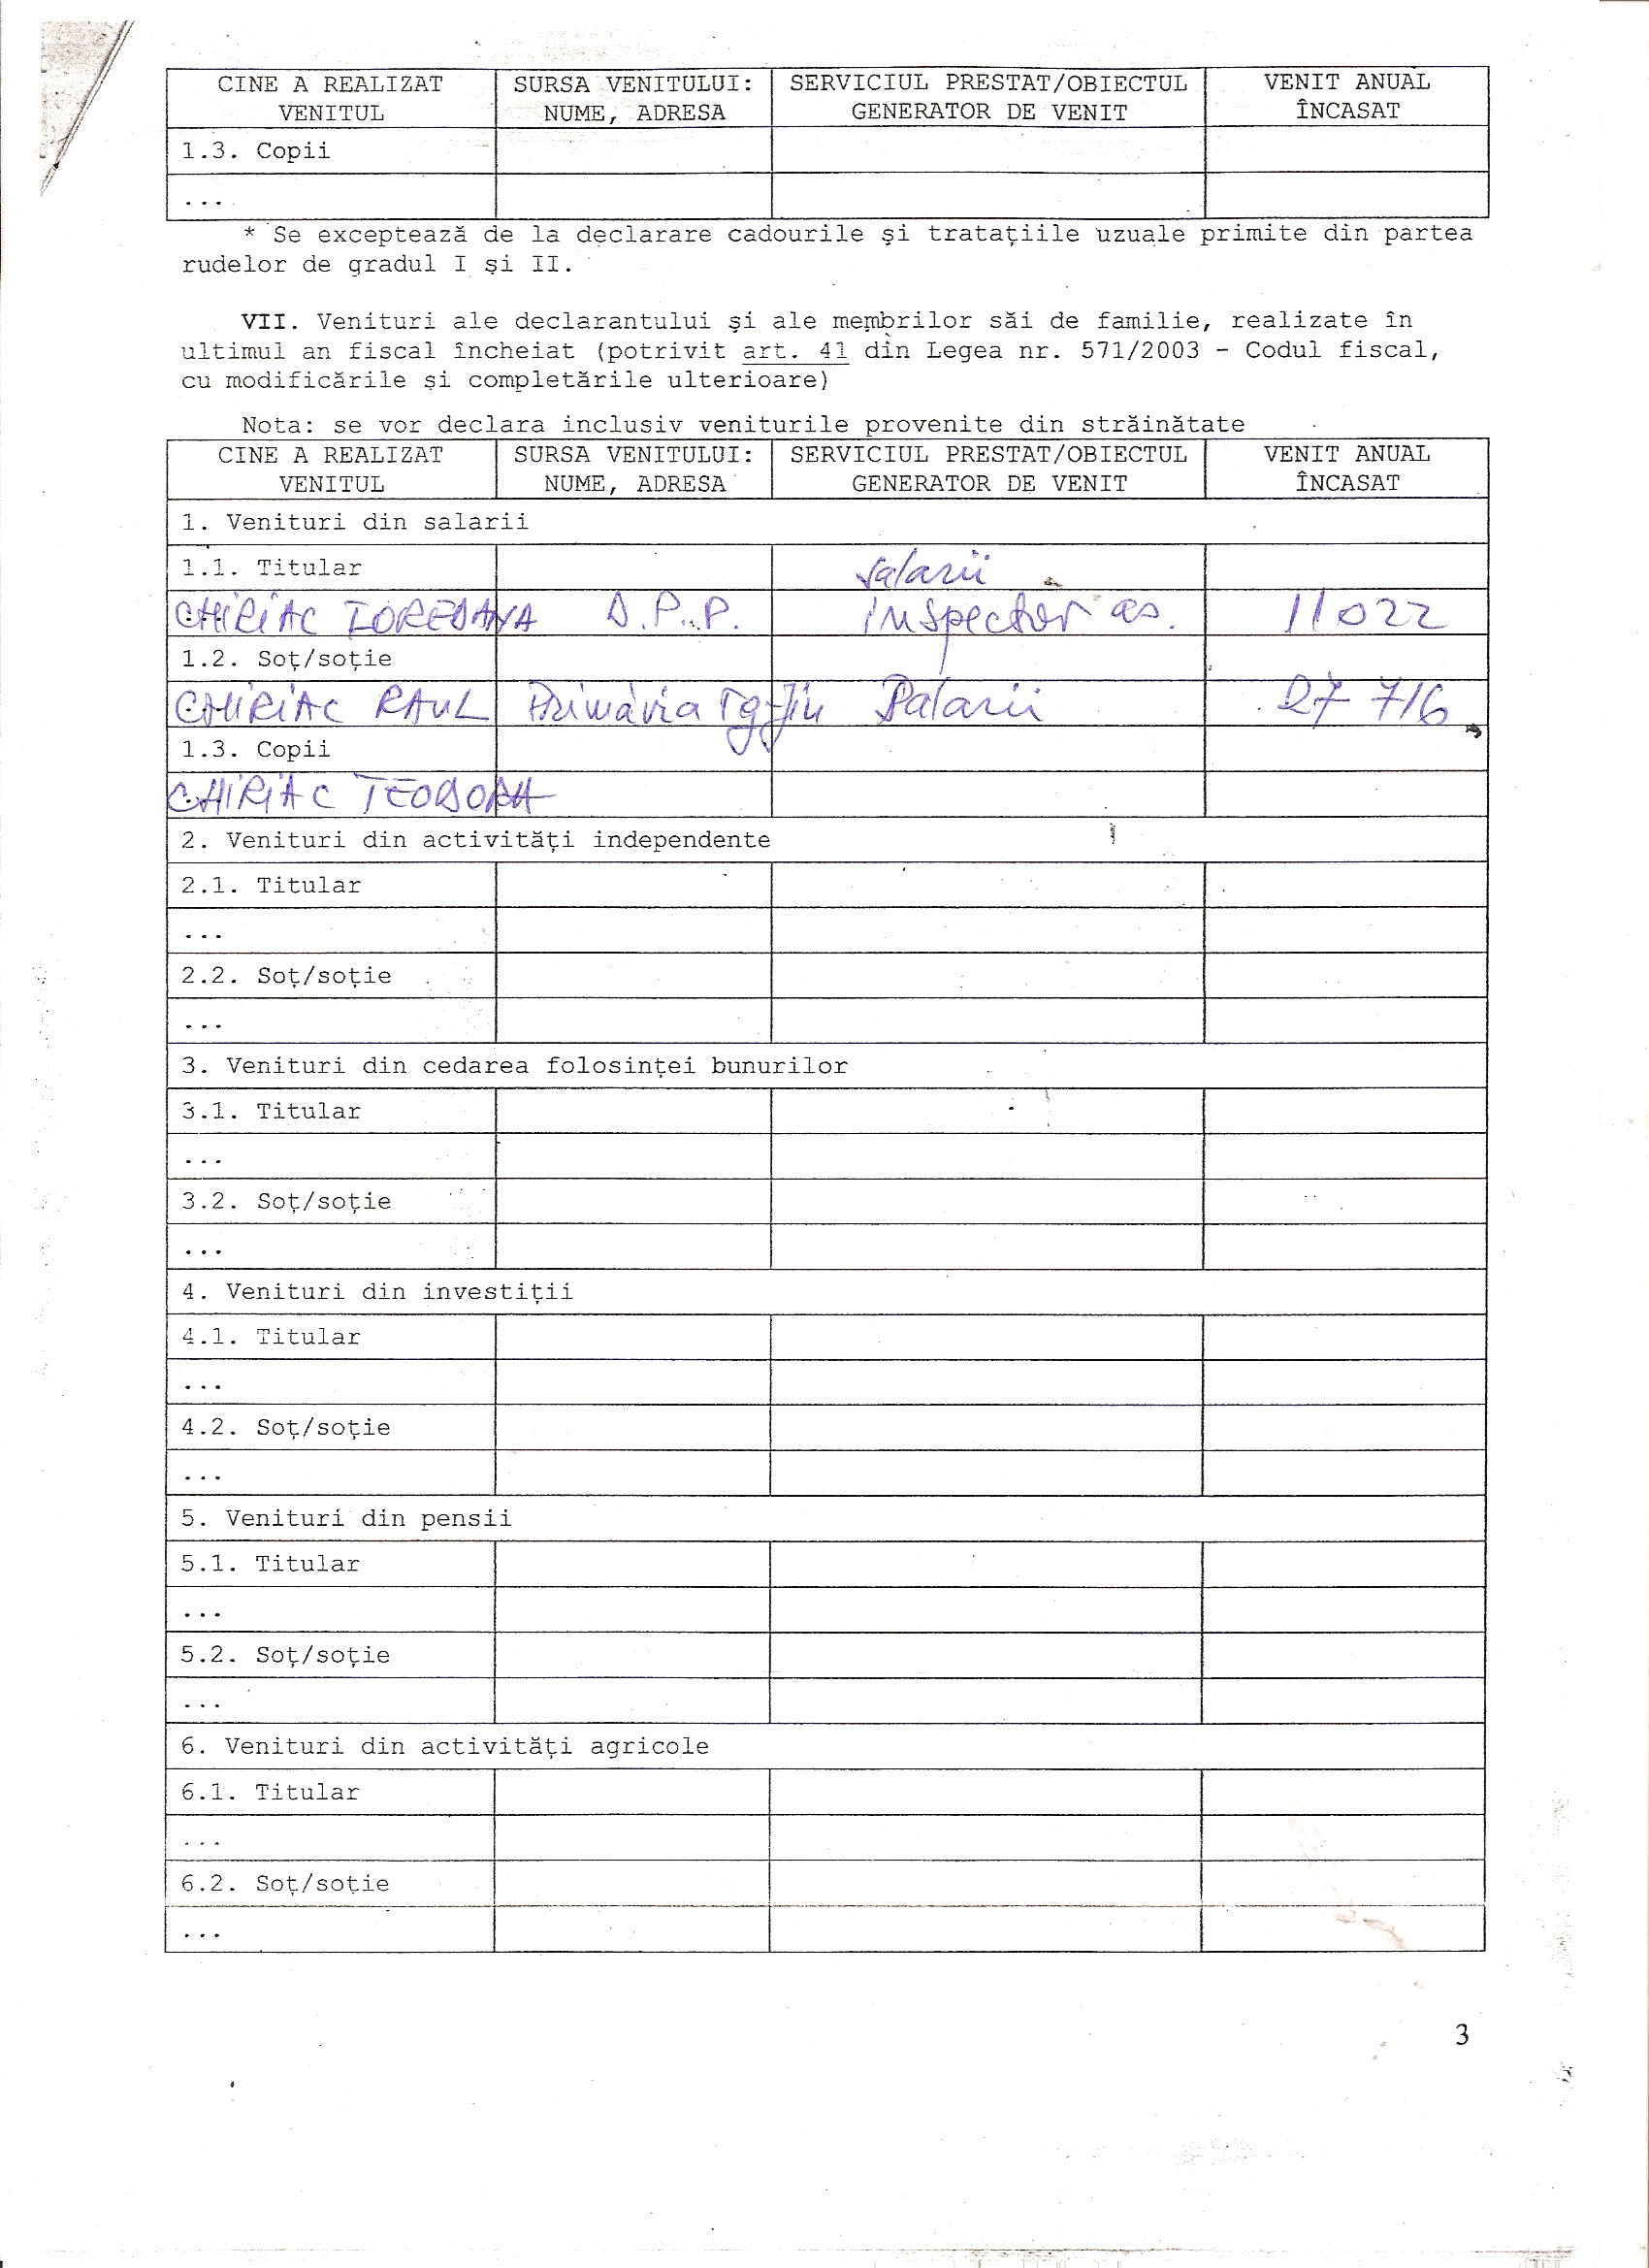 CINE A REALIZAT SURSA VENITULUI: SERVICIUL PRESTAT/OBIECTUL VENIT ANUAL
VENITUL NUME, ADRESA GENERATOR DE VENIT ÎNCASAT
1.3. Copii
...
* Se exceptează de la declarare cadourile şi trataţiile uzuale primite din partea
rudelor de gradul I şi II.
VII. Venituri ale declarantului şi ale membrilor săi de familie, realizate în
ultimul an fiscal încheiat (potrivit art. 41 din Legea nr. 571/2003 - Codul fiscal,
cu modificările şi completările ulterioare)
Nota: se vor declara inclusiv veniturile provenite din străinătate
CINE A REALIZAT SURSA VENITULUI: SERVICIUL PRESTAT/OBIECTUL VENIT ANUAL
VENITUL NUME, ADRESA GENERATOR DE VENIT ÎNCASAT
1. Venituri din salarii
1.1. Titular salarii
CHIRIAC LOREDANA D.P.P. inspector as. 11022
1.2. Soţ/soţie
CHIRIAC RAUL Primăria Tg-Jiu Salarii 27 716
1.3. Copii
CHIRIAC TEODORA
2. Venituri din activităţi independente
2.1. Titular
...
2.2. Soţ/soţie
...
3. Venituri din cedarea folosinţei bunurilor
3.1. Titular
...
3.2. Soţ/soţie
...
4. Venituri din investiţii
4.1. Titular
...
4.2. Soţ/soţie
...
5. Venituri din pensii
5.1. Titular
...
5.2. Soţ/soţie
...
6. Venituri din activităţi agricole
6.1. Titular
...
6.2. Soţ/soţie
...
3